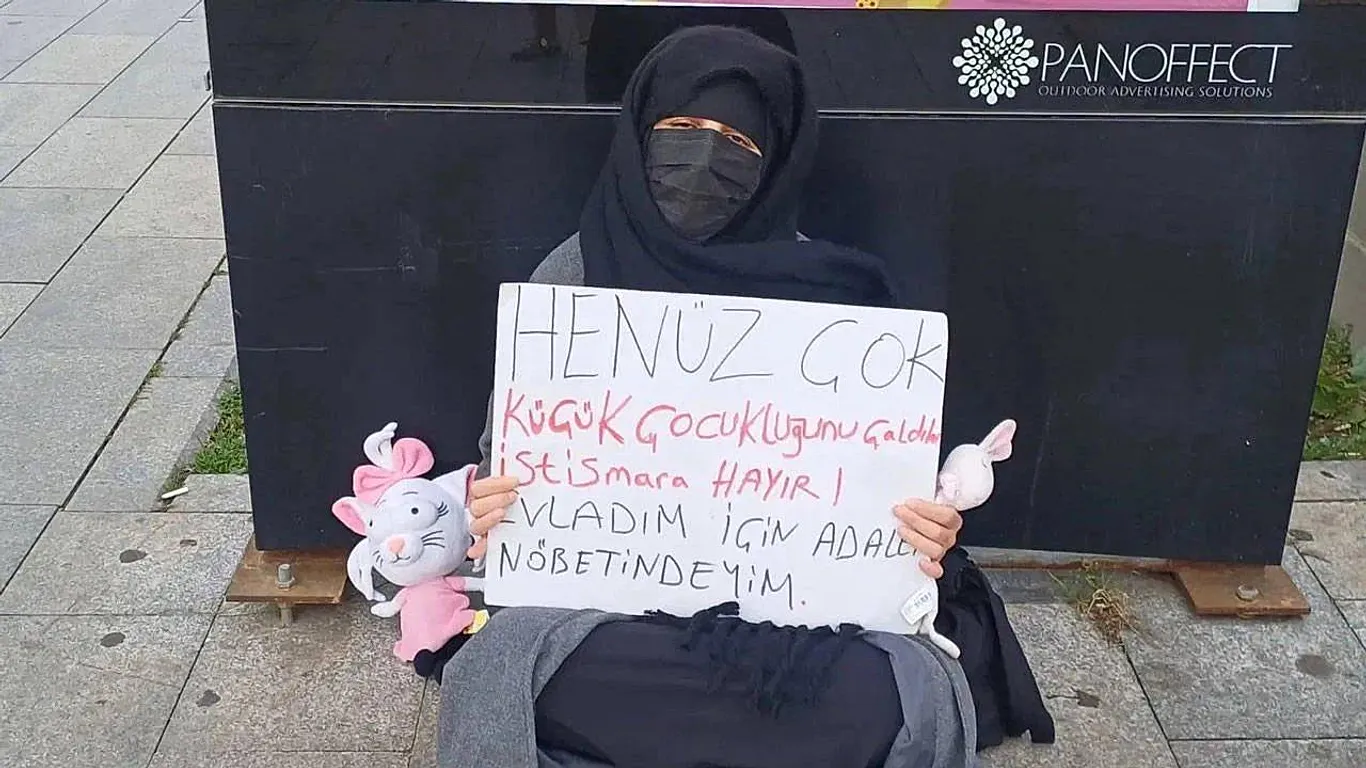 PANOFFECT
OUTDOOR ADVERTISING SOLUTIONS
HENÜZ ÇOK
KÜÇÜK ÇOCUKLUĞUNU ÇaLdıLar
İSTİSmara HAYIR!
EVLADIM İÇİN
NÖBETİNDEYİM.